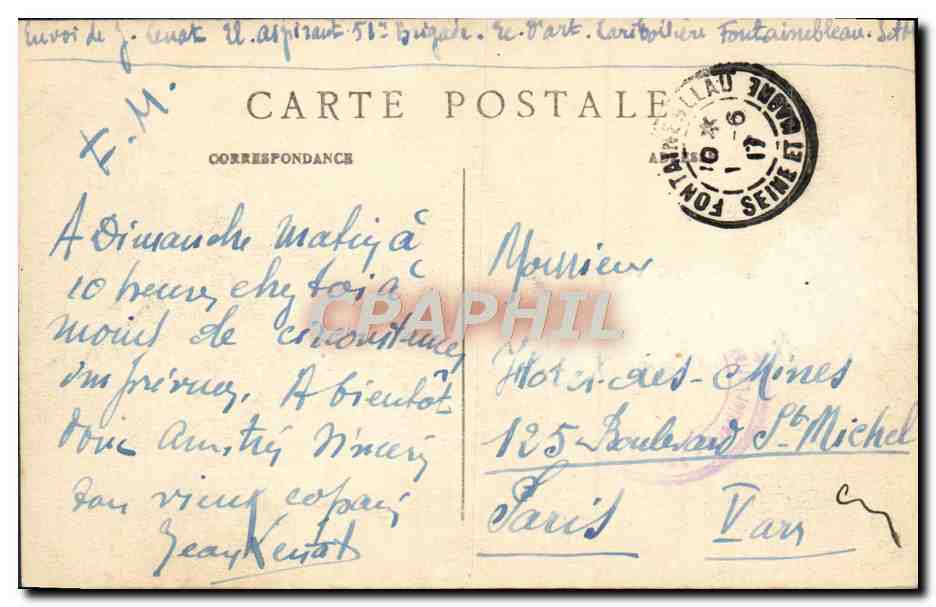 Envoi de J. Cenat El. aspirant 51e Brigade. Ec. d'art. Lariboisière Fontainebleau. S et M
F. M.
CARTE POSTALE
CORRESPONDANCE
FONTAINEBLEAU
SEINE ET MARNE
10 *
1 - 6
17
A Dimanche Matin à
10 heures chez toi à
moins de circonstances
imprévues. A bientôt
donc Amitiés Sincères
ton vieux copain
Jean Cenat
Monsieur
Hotel-des-Mines
125 Boulevard St Michel
Paris Varr
CPAPHIL